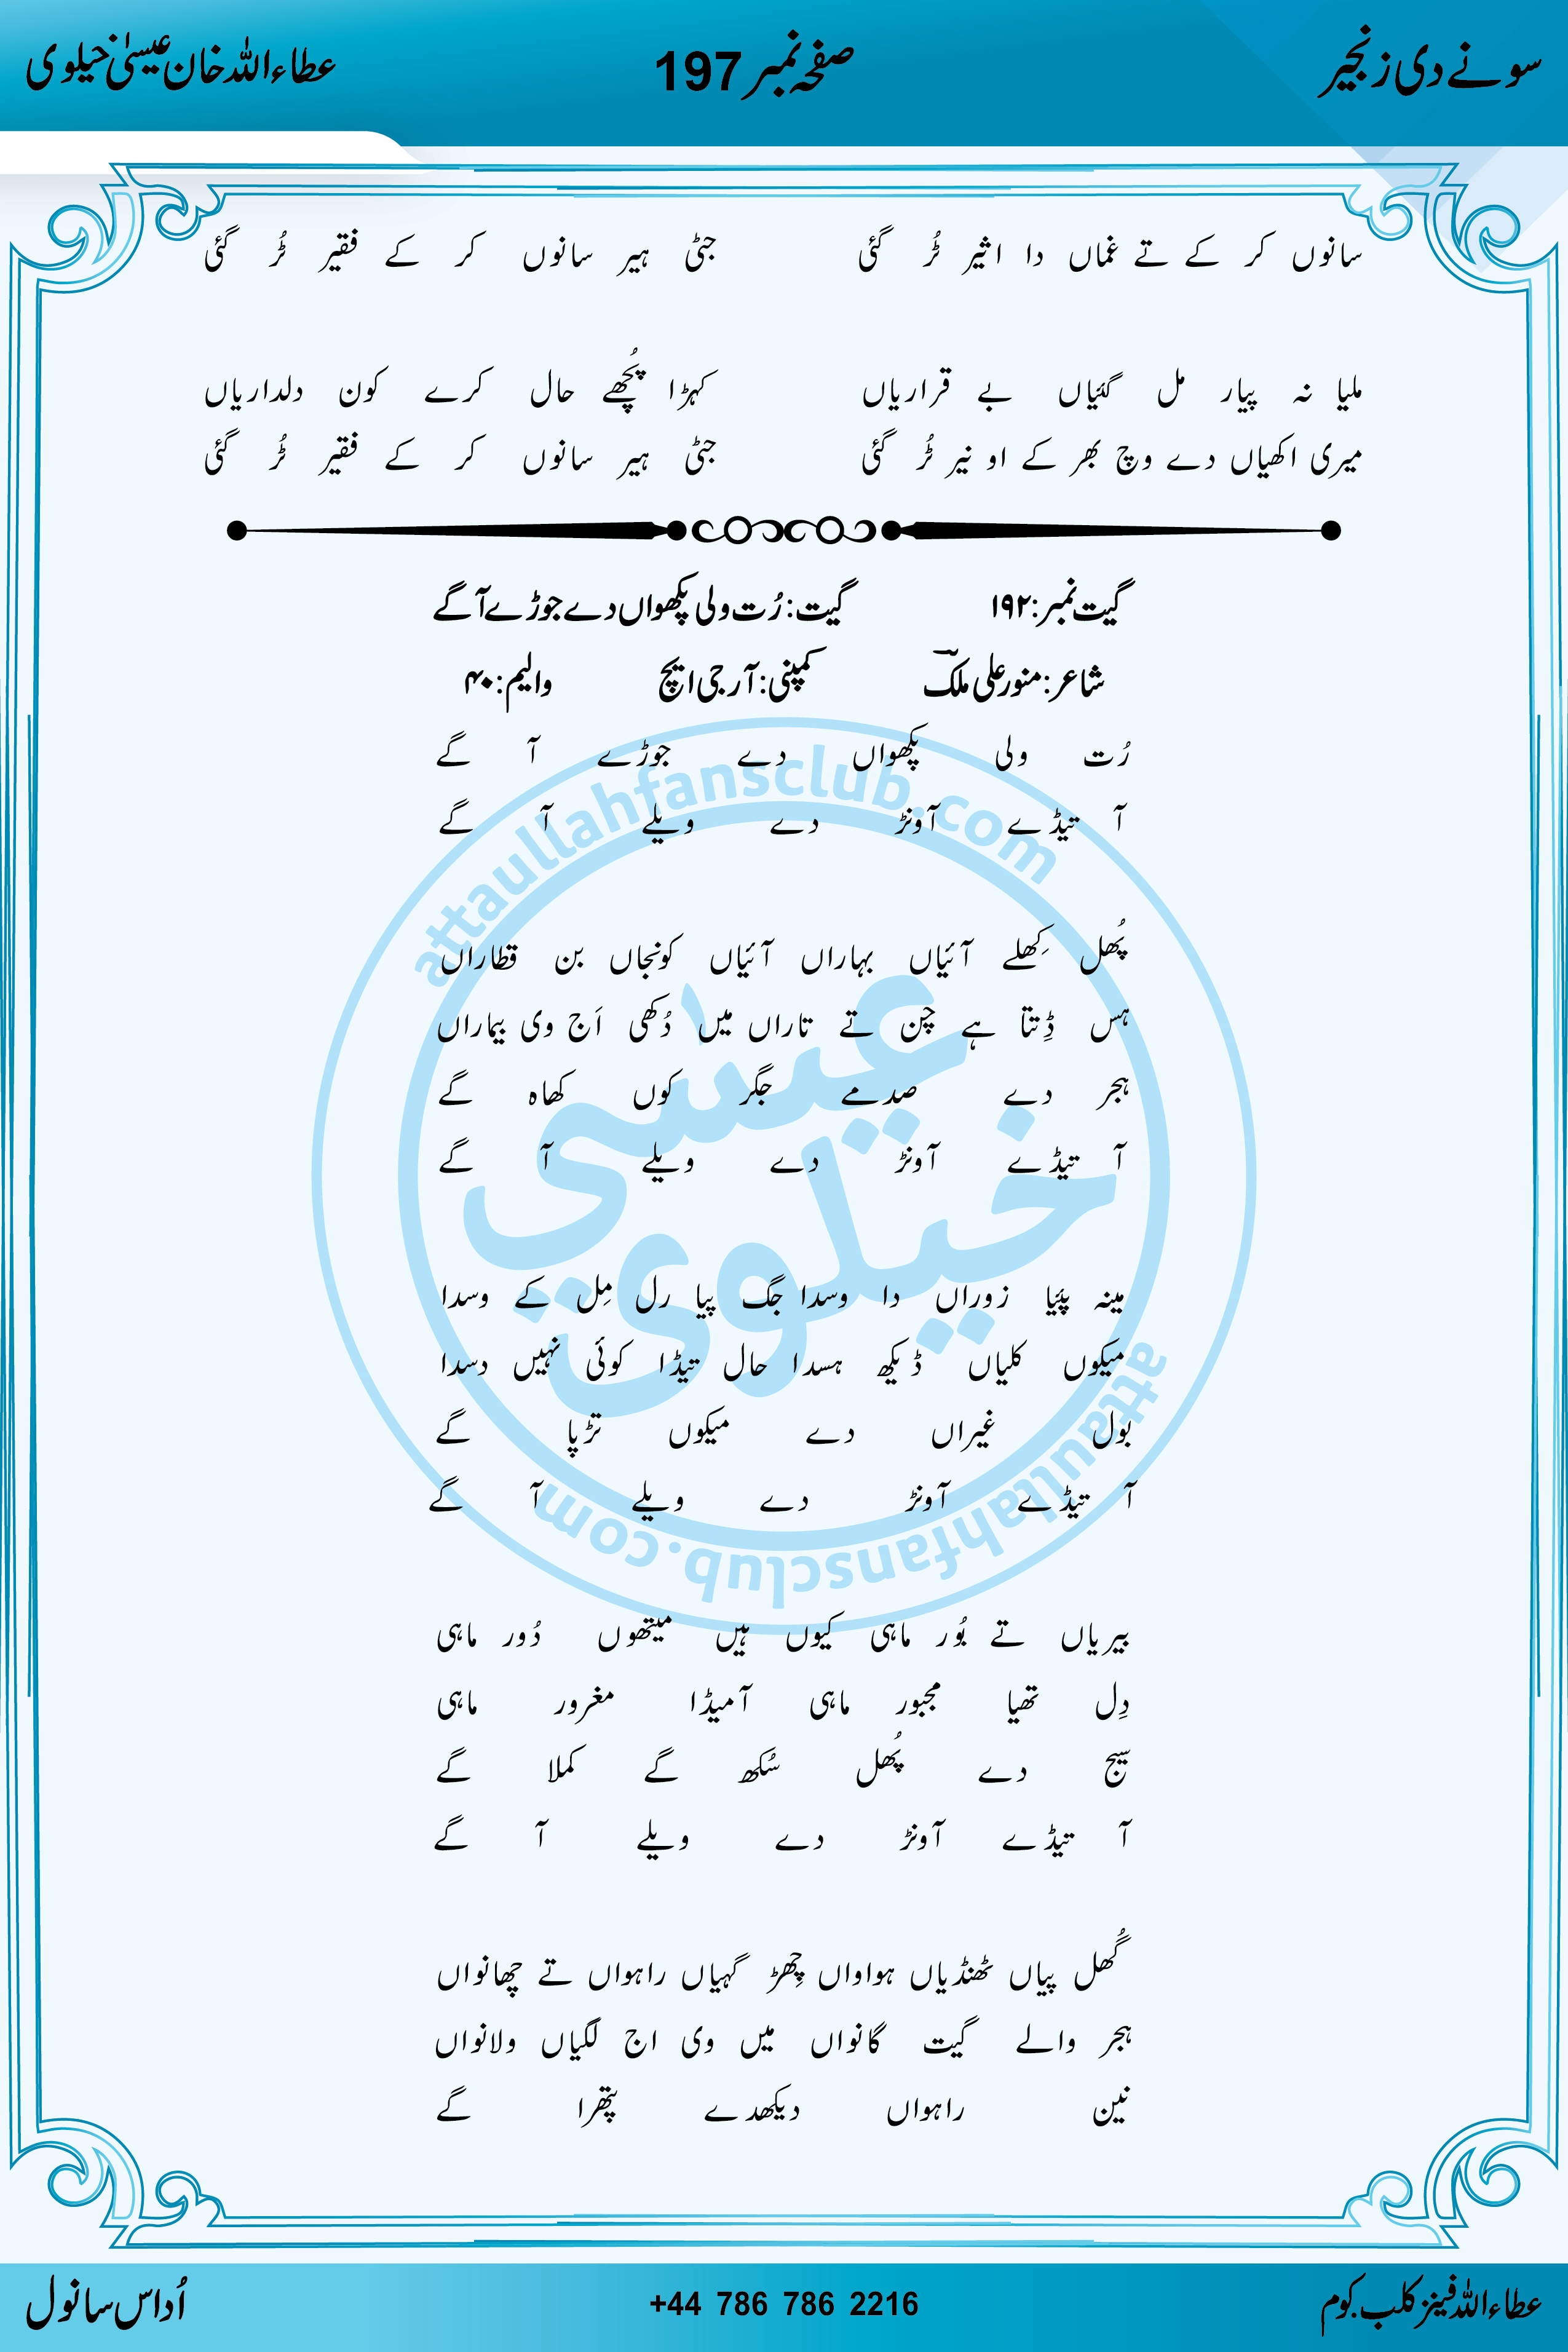 سونے دی زنجیر صفحہ نمبر 197 عطاء اللہ خان عیسیٰ خیلوی
سانوں کر کے تے غماں دا اثیر ٹُر گئی جٹی ہیر سانوں کر کے فقیر ٹُر گئی
ملیا نہ پیار مل گئیاں بے قراریاں کہڑا پُچھے حال کرے کون دلداریاں
میری اکھیاں دے وچ بھر کے او نیر ٹُر گئی جٹی ہیر سانوں کر کے فقیر ٹُر گئی
گیت نمبر: ۱۹۲ گیت: رُت ولی پکھواں دے جوڑے آ گے
شاعر: منور علی ملکؔ کمپنی: آر جی ایچ والیم: ۴۰
رُت ولی پکھواں دے جوڑے آ گے
آ تیڈے آونڑ دے ویلے آ گے
پُھل کِھلے آئیاں بہاراں آئیاں کونجاں بن قطاراں
ہس ڈِتا ہے چن تے تاراں میں دُکھی اَج وی بیماراں
ہجر دے صدمے جگر کوں کھاہ گے
آ تیڈے آونڑ دے ویلے آ گے
مینہ پئیا زوراں دا وسدا جگ پیا رل مِل کے وسدا
میکوں کلیاں ڈیکھ ہسدا حال تیڈا کوئی نہیں دسدا
بول غیراں دے میکوں تڑپا گے
آ تیڈے آونڑ دے ویلے آ گے
بیریاں تے بُور ماہی کیوں ہیں میتھوں دُور ماہی
دِل تھیا مجبور ماہی آ میڈا مغرور ماہی
سیج دے پُھل سُکھ گے کملا گے
آ تیڈے آونڑ دے ویلے آ گے
گُھل پیاں ٹھنڈیاں ہواواں چِھڑ گہیاں راہواں تے چھانواں
ہجر والے گیت گانواں میں وی اج لگیاں ولانواں
نین راہواں دیکھدے پتھرا گے
attaullahfansclub.com
عیسٰی
خیلوی
attaullahfansclub.com
عطاء اللہ فینز کلب.کوم +44 786 786 2216 اُداس سانول